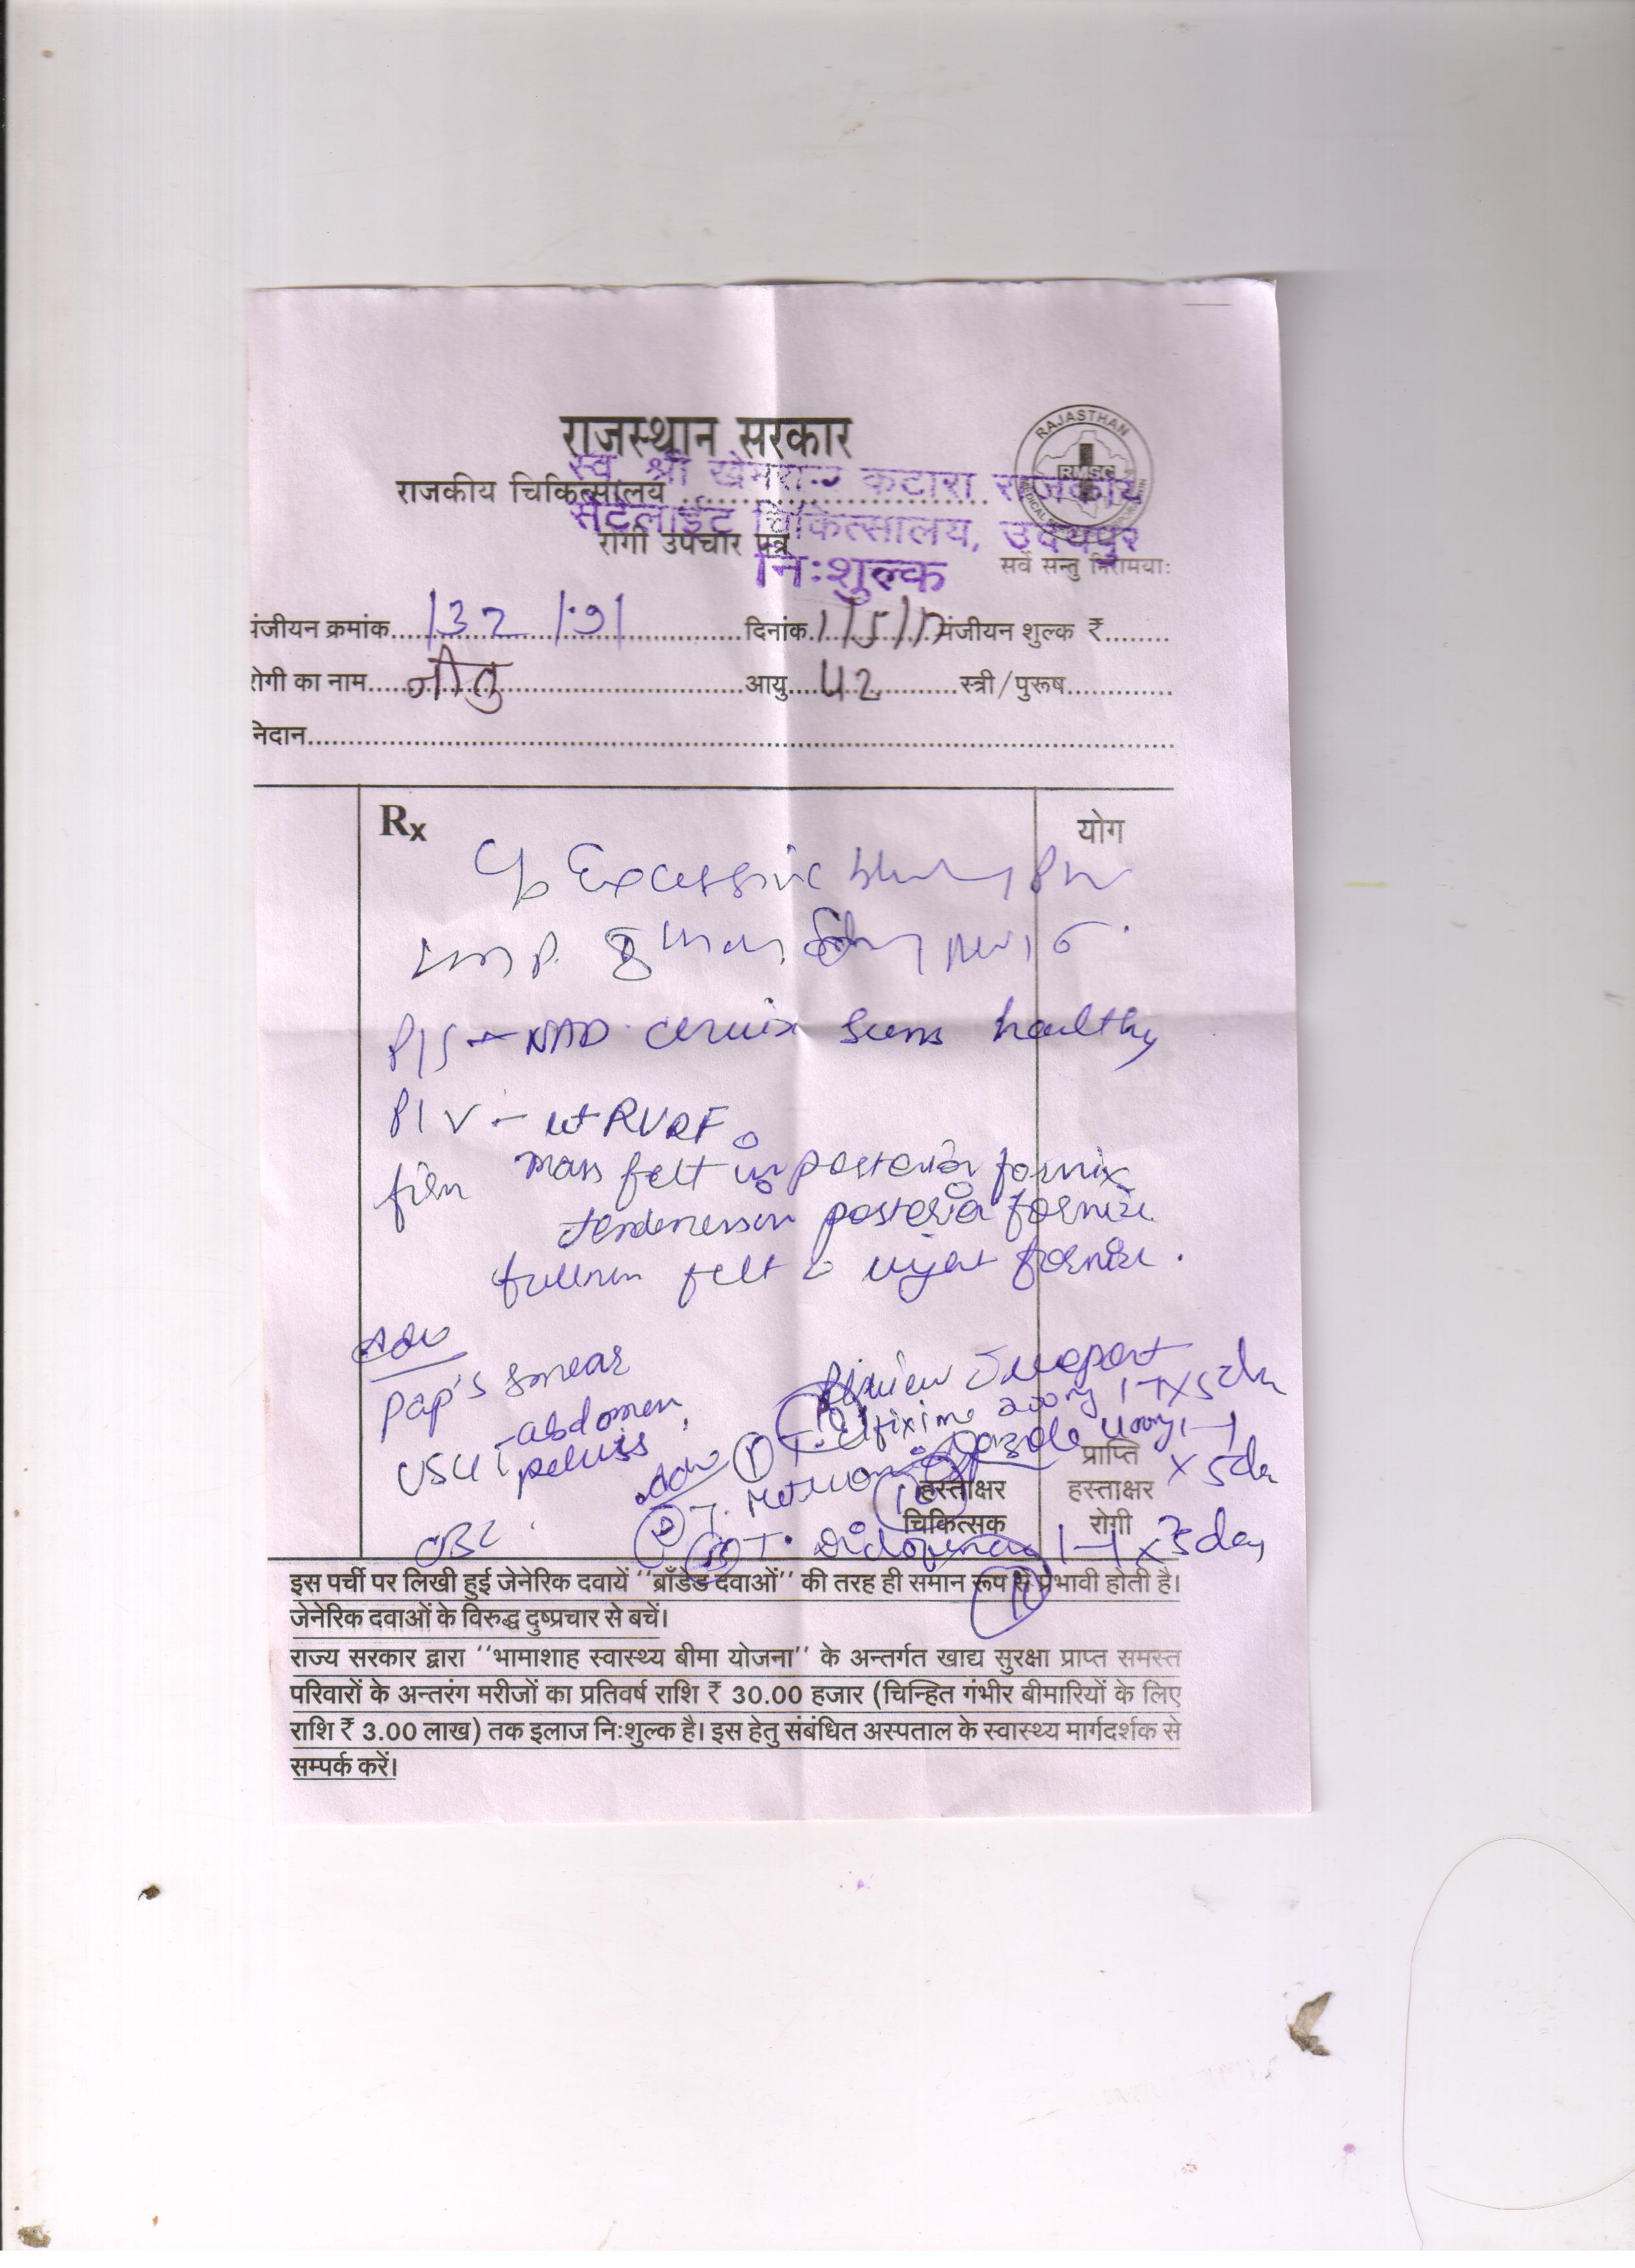 राजस्थान सरकार
RAJASTHAN
RMSC
स्व. श्री खेमराज कटारा राजकीय
राजकीय चिकित्सालय
सेटेलाईट चिकित्सालय, उदयपुर
रोगी उपचार पत्र
निःशुल्क
सर्वे सन्तु निरामयाः
पंजीयन क्रमांक दिनांक 1/5/17 पंजीयन शुल्क ₹
रोगी का नाम नीतु आयु 42 स्त्री/पुरूष
निदान
Rx योग
C/o Excessive
P/S NAD cervix seems healthy
P/V - ut RVRF
firm mass felt in posterior fornix
tenderness in posterior fornix
fullness felt right fornix.
Adv
Pap's smear
USG abdomen
pelvis
CBC
Review
Adv ① T. Cefixime 200mg 1-1 x 5 da
② T. Metronidazole 400mg 1-1
x 5 da
③ T. Diclofenac 1-1 x 5 day
10
प्राप्ति
हस्ताक्षर हस्ताक्षर
चिकित्सक रोगी
इस पर्ची पर लिखी हुई जेनेरिक दवायें ''ब्राँडेड दवाओं'' की तरह ही समान रूप से प्रभावी होती है।
जेनेरिक दवाओं के विरुद्ध दुष्प्रचार से बचें।
राज्य सरकार द्वारा ''भामाशाह स्वास्थ्य बीमा योजना'' के अन्तर्गत खाद्य सुरक्षा प्राप्त समस्त
परिवारों के अन्तरंग मरीजों का प्रतिवर्ष राशि ₹ 30.00 हजार (चिन्हित गंभीर बीमारियों के लिए
राशि ₹ 3.00 लाख) तक इलाज निःशुल्क है। इस हेतु संबंधित अस्पताल के स्वास्थ्य मार्गदर्शक से
सम्पर्क करें।